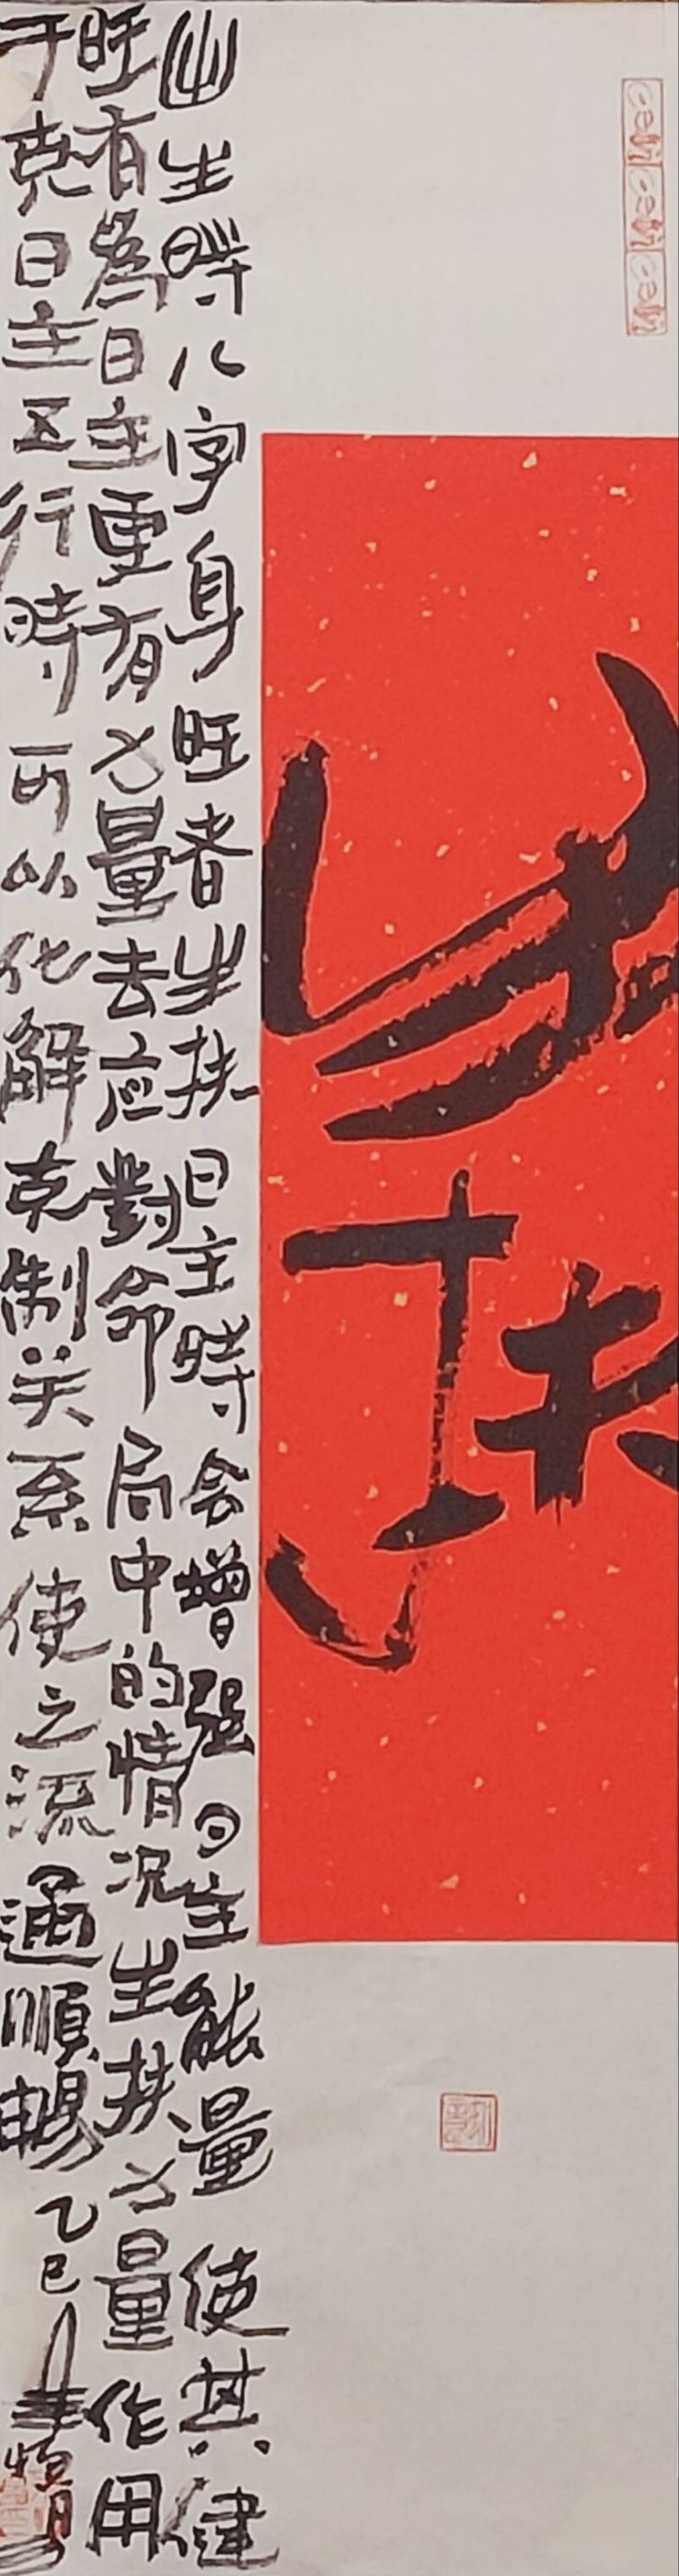 出生時八字身旺者生扶日主時会增强日主能量使其健
旺有為日主更有力量去应對命局中的情况生扶力量作用
于克日主五行時可以化解克制关系使之流通順暢乙巳